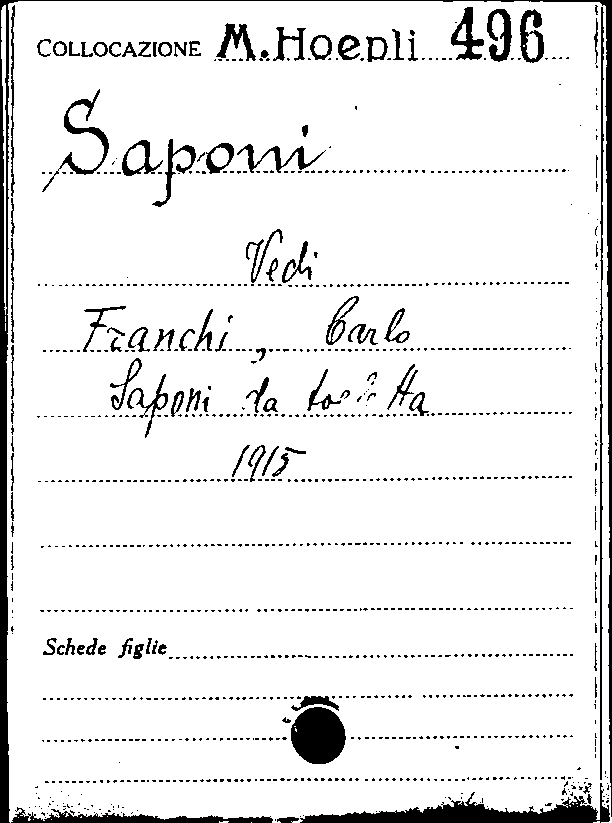 COLLOCAZIONE M. Hoepli 496
Saponi
Vedi
Franchi, Carlo
Saponi da toeletta
1915
Schede figlie